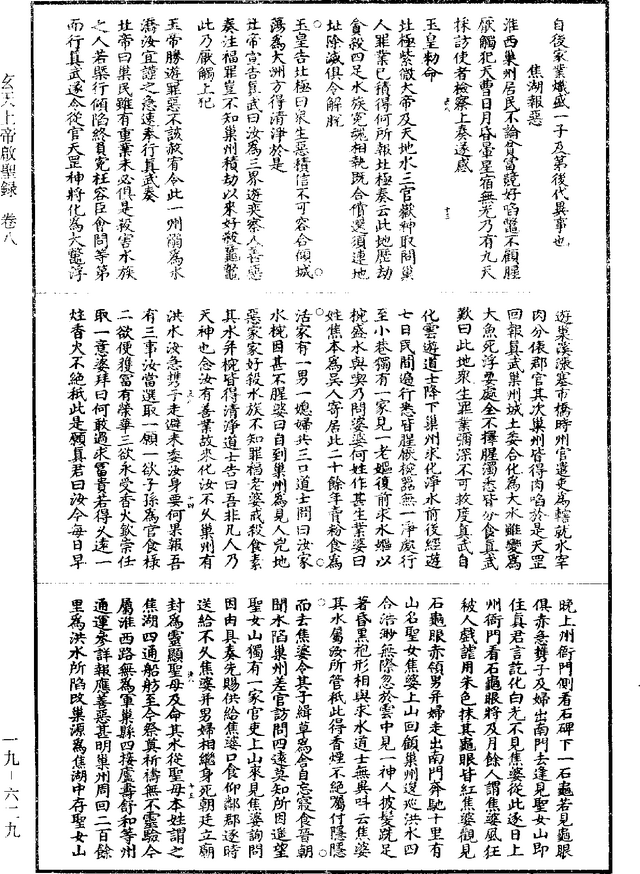 自後家業熾盛一子及第後代異事也
焦湖報惡
淮西巢州居民不論貧富競好㗖鼈不顧腥
厭觸犯天曹日月昏暈星宿無光乃有九天
採訪使者檢察上奏遂感
玉皇勑命
北極紫微大帝及天地水三官歡神取問巢
人罪業已積得何所報北極奏云此地歷劫
貪殺四足水族冤魂相執既合償還須連地
址除滅俱令解脫
玉皇告北極曰衆生惡積信不可容合傾城
蕩爲大洲方得清淨於是
北帝宣告真武曰汝爲三界遊奕察人善惡
奏注福罪豈不知巢州積劫以來好殺龜鼈
此乃厭觸上犯
玉帝勝遊罪惡不該赦宥令此一州溺爲水
潦汝宜證之急速奉行真武奏
北帝曰巢民雖有重業未必俱是殺害水族
之人若槩行傾陷終負冤枉容臣會問等第
而行真武遂令從官天罡神將化爲大鼈浮
遊巢溪漾暮市橋時州官遣吏爲轄就水宰
肉分俵郡官其次巢州皆得肉㗖於是天罡
回報真武巢州城土委合化爲大水雖變爲
大魚死浮要處全不擇腥濁悉皆分食真武
歎曰此地衆生罪業彌深不可救度真武自
化雲遊道士降下巢州求化淨水前後經遊
七日民間遍行悉皆腥厭椀器無一淨處行
至小巷獨有一家見一老嫗復前求水嫗以
椀盛水與喫乃問婆婆何姓作甚生業婆曰
姓焦本爲吳人寄居此二十餘年賣粉食爲
活家有一男一媳婦共三口道士問曰汝家
水椀因甚不腥婆曰自到巢州爲見人兇地
惡家家好殺水族不知罪福老婆戒殺食素
其水并椀皆得清淨道士告曰吾非凡人乃
天神也念汝有善業故來化汝不久巢州有
洪水汝急携子走避未委汝身要何果報吾
有三事汝當選取一願一欲子孫爲官食祿
二欲便獲富有榮華三欲永受香火欽崇任
取一意婆拜曰何敢過求富貴若得久遠一
炷香火不絕秪此是願真君曰汝今每日早
晚上州衙門側看石碑下一石龜若見龜眼
俱赤急携子及婦出南門去逢見聖女山即
住真君言訖化白光不見焦婆從此逐日上
州衙門看石龜眼將及月餘人謂焦婆風狂
被人戲謔用朱色抹其龜眼皆紅焦婆觀見
石龜眼赤領男并婦走出南門奔馳十里有
山名聖女焦婆上山回顧巢州遶迆洪水四
合浩渺無際忽於雲中見一神人披髮跣足
著昏黑袍形相與求水道士無異呌云焦婆
其水屬汝所管秪此得香煙不絕屬付隱隱
而去焦婆令其子緝草爲舍自忘寢食晉朝
聞水陷巢州差官訪問四遠莫知所因遙望
聖女山獨有一家官吏上山來見焦婆詢問
因由具奏先賜供給焦婆口食仰鄰郡逐時
送給不久焦婆并男婦相繼身死朝廷立廟
封爲靈顯聖母及命其水從聖母本姓謂之
焦湖四通船舫至今祭奠祈禱無不靈驗今
屬淮西路無爲軍巢縣四接廬壽舒和等州
通運參詳報應善惡甚明巢州周回二百餘
里爲洪水所陷改巢源爲焦湖中存聖女山
玄天上帝啟聖録 卷八
一九-六二九